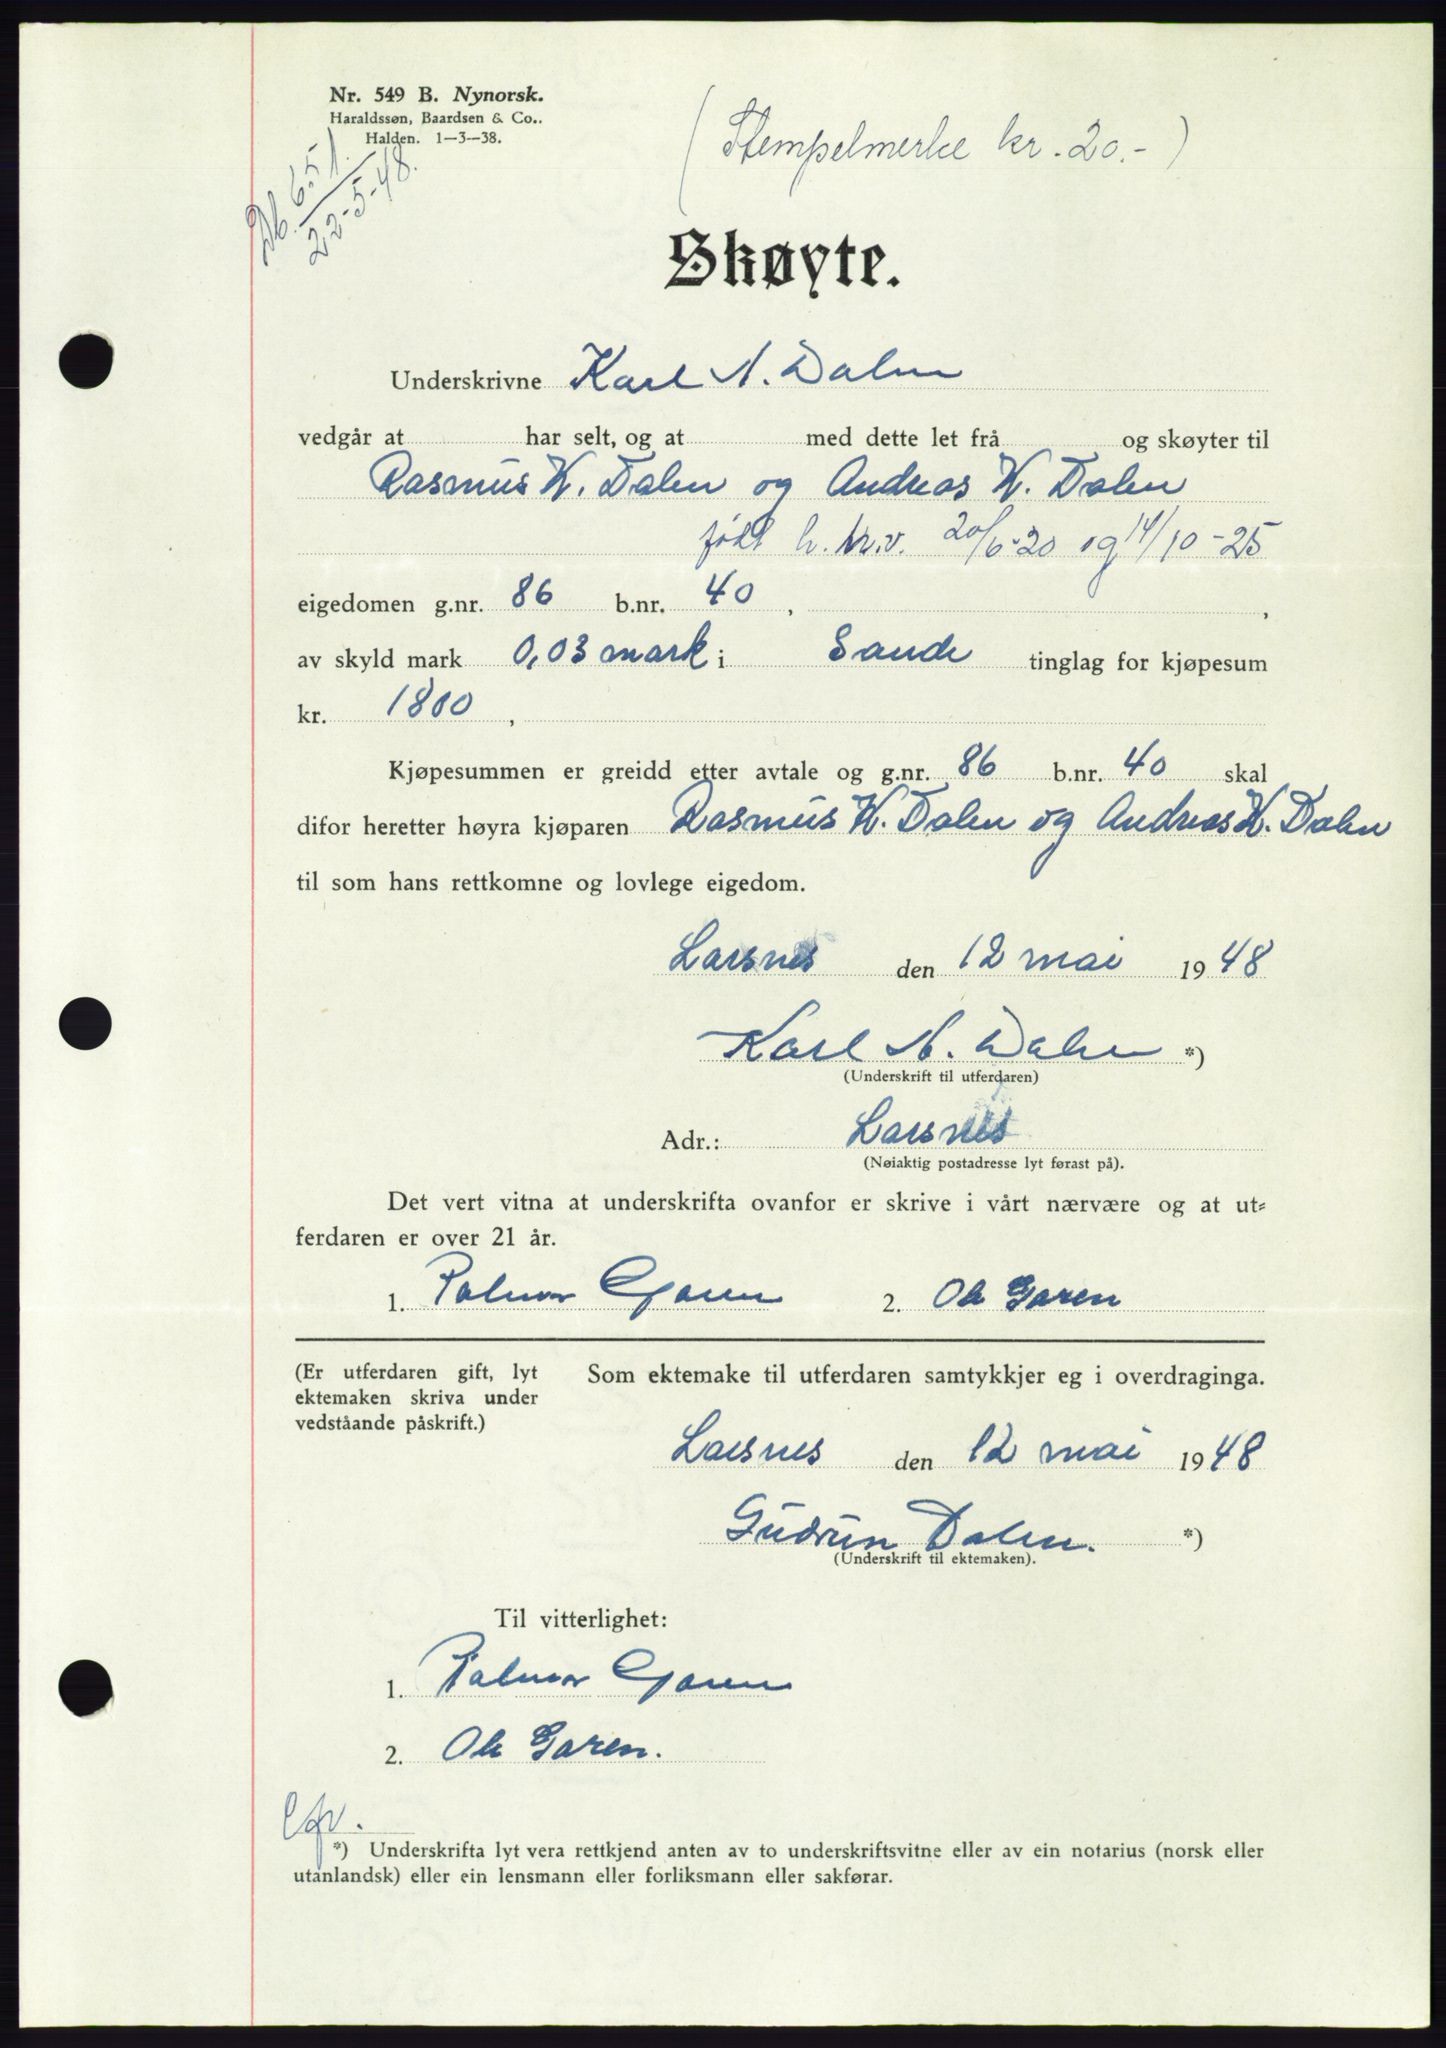 Nr. 549 B. Nynorsk.
Haraldssøn, Baardsen & Co..
Halden. 1—3—38.
(Stempelmerke kr. 20.-)
Db. 651.
22-5-48.
Skøyte.
Underskrivne Karl N. Dalen
vedgår at har selt, og at med dette let frå og skøyter til
Rasmus K. Dalen og Andreas K. Dalen
født h. h.v. 20/6-20 og 14/10-25
eigedomen g.nr. 86 b.nr. 40 , ,
av skyld mark 0,03 mark i Sande tinglag for kjøpesum
kr. 1800 ,
Kjøpesummen er greidd etter avtale og g.nr. 86 b.nr. 40 skal
difor heretter høyra kjøparen Rasmus K. Dalen og Andreas K. Dalen
til som hans rettkomne og lovlege eigedom.
Larsnes den 12 mai 1948
Karl N. Dalen *)
(Underskrift til utferdaren)
Adr.: Larsnes
(Nøiaktig postadresse lyt førast på).
Det vert vitna at underskrifta ovanfor er skrive i vårt nærvære og at ut-
ferdaren er over 21 år.
1. Palmar Garen 2. Ole Garen
(Er utferdaren gift, lyt
ektemaken skriva under
vedståande påskrift.)
Som ektemake til utferdaren samtykkjer eg i overdraginga.
Larsnes den 12 mai 1948
Gudrun Dalen. *)
(Underskrift til ektemaken).
Til vitterlighet:
1. Palmar Garen
2. Ole Garen.
*) Underskrifta lyt vera rettkjend anten av to underskriftsvitne eller av ein notarius (norsk eller
utanlandsk) eller ein lensmann eller forliksmann eller sakførar.